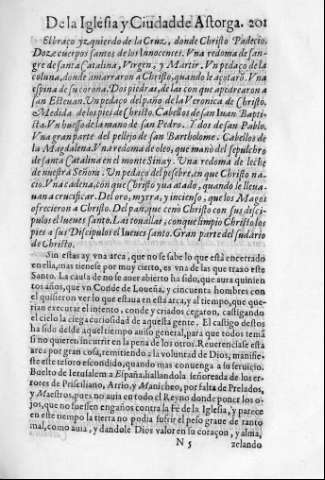 De la Iglesia y Ciudad de Astorga. 201
El braço yzquierdo de la Cruz, donde Christo Padecio.
Doze cuerpos santos de los Innocentes. Vna redoma de san-
gre de santa Catalina, Virgen, y Martir. Vn pedaço de la
coluna, donde amarraron a Christo, quando le açotarõ. Vna
espina de su corona. Dos piedras, de las con que apedrearon a
san Esteuan. Vn pedaço del paño de la Veronica de Christo.
Medida de los pies de Christo. Cabellos de san Iuan Bapti-
sta. Vn huesso de la mano de san Pedro. Y dos de san Pablo.
Vna gran parte del pellejo de san Bartholome. Cabellos de
la Magdalena. Vna redoma de oleo, que manò del sepulchro
de santa Catalina en el monte Sinay. Vna redoma de leche
de nuestra Señora. Vn pedaço del pesebre, en que Christo na-
cio. Vna cadena, con que Christo yua atado, quando le lleua-
uan a crucificar. Del oro, myrra, y incienso, que los Magos
ofrecieron a Christo. Del pan, que cenò Christo con sus disci-
pulos el Iueues santo. Las touallas, con que limpio Christo los
pies a sus Discipulos el Iueues santo. Gran parte del sudario
de Christo.
Sin estas ay vna arca, que no se sabe lo que està encerrado
en ella, mas tienese por muy cierto, es vna de las que traxo este
Santo. La causa de no se auer abierto ha sido, que aura quinien
tos años, que vn Conde de Loueña, y cincuenta hombres con
el quisieron ver lo que estaua en esta arca, y al tiempo, que que-
rian executar el intento, conde y criados cegaron, castigando
el cielo la ciega curiosidad de aquesta gente. El castigo destos
ha sido desde aquel tiempo auiso general, para que todos temã
si no quieren incurrir en la pena de los otros. Reuerenciase esta
arca por gran cosa, remitiendo a la voluntad de Dios, manifie-
ste este tesoro escondido, quando mas conuenga a su seruicio.
Buelto de Ierusalem a España, hallandola señoreada de los er-
rores de Prisciliano, Arrio, y Manicheo, por falta de Prelados,
y Maestros, pues no auia en todo el Reyno donde poner los o-
jos, que no fuessen engaños contra la Fè de la Iglesia, y parece
en este tiempo la tierra no podia sufrir el peso graue de tanto
mal, como auia, y dandole Dios valor en su coraçon, y alma,
N 5 zelando